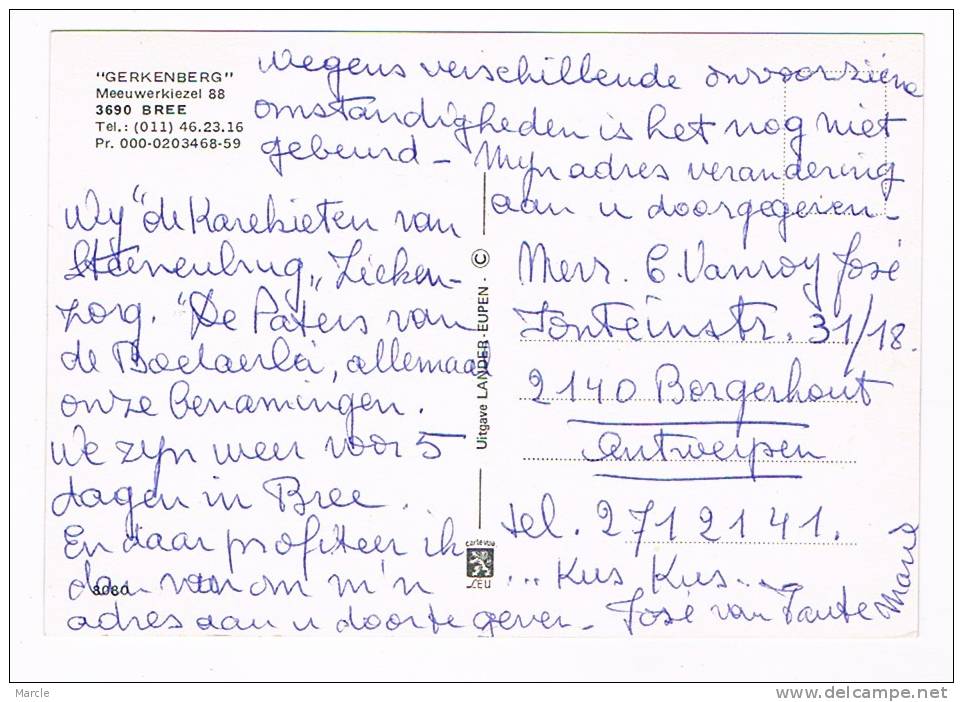 "GERKENBERG"
Meeuwerkiezel 88
3690 BREE
Tel.: (011) 46.23.16
Pr. 000-0203468-59
wegens verschillende onvoorziene
omstandigheden is het nog niet
gebeurd - Mijn adres verandering
aan u doorgegeven -
Wij "de Karekieten van
Steenenbrug" Zieken-
zorg. "De Paters van
de allemaal
onze benamingen.
We zijn weer voor 5
dagen in Bree.
En daar profiteer ik
dan van om m'n
adres aan u door te geven -
8080
Uitgave LANDER-EUPEN. ©
carte vue
LEU
Mevr. C. Vanroy José
Fonteinstr. 31/18.
2140 Borgerhout
Antwerpen
tel. 2712141.
... Kus Kus ...
José van Tante Maria
Marcle
http://www.delcampe.net